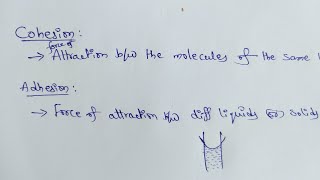 Cohesion:
force of
→ Attraction b/w the molecules of the same
Adhesion:
→ Force of attraction b/w diff liquids (or) solids